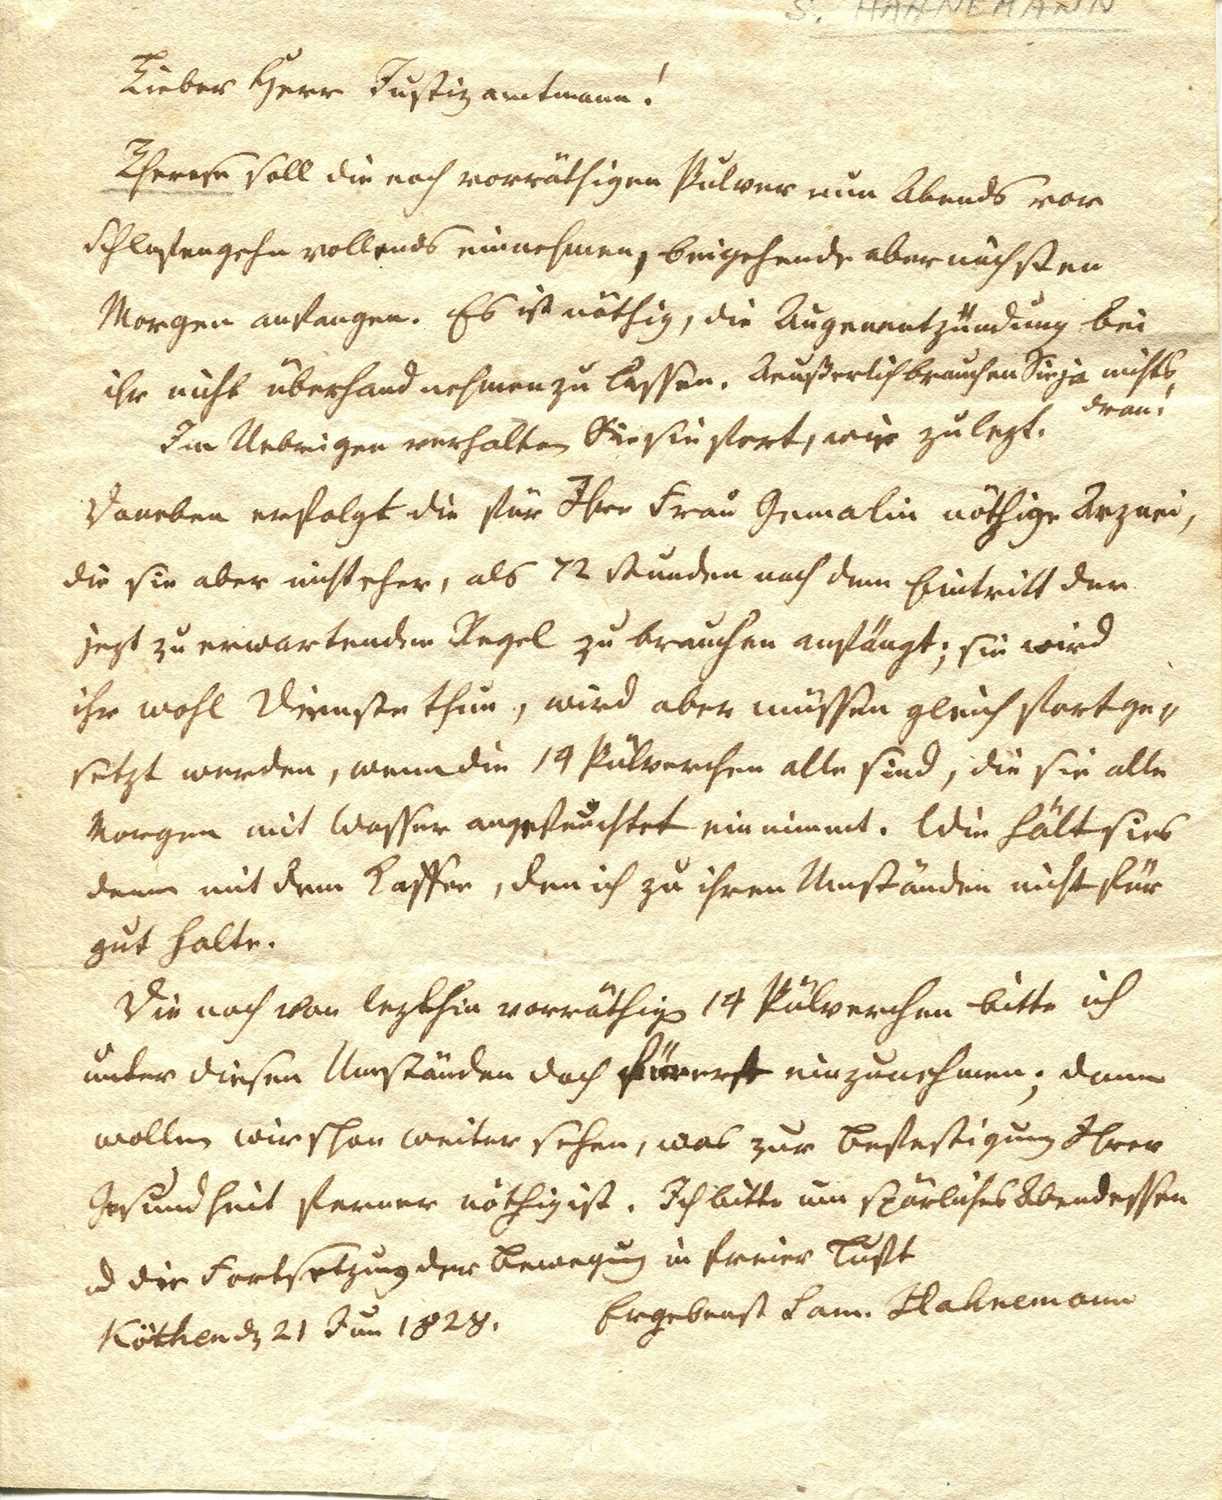 S. HAHNEMANN
Lieber Herr Justizamtmann!
Therese soll die noch vorräthigen Pulver nun Abends vor
Schlafengehn vollends einnehmen, beigehende aber nächsten
Morgen anfangen. Es ist nöthig, die Augenentzündung bei
ihr nicht überhand nehmen zu lassen. Aeußerlich brauchen Sie ja nichts
dran!
Im Uebrigen verhalten Sie sie fort, wie zulezt.
Daneben erfolgt die für Ihre Frau Gemalin nöthige Arznei,
die sie aber nicht eher, als 72 Stunden nach dem Eintritt der
jezt zu erwartenden Regel zu brauchen anfängt; sie wird
ihr wohl Dienste thun, wird aber müssen gleich fortge-
setzt werden, wenn die 14 Pülverchen alle sind, die sie alle
Morgen mit Wasser angefeuchtet einnimmt. Wie hält sies
denn mit dem Kaffee, den ich zu ihren Umständen nicht für
gut halte.
Die noch von lezthin vorräthige 14 Pülverchen bitte ich
unter diesen Umständen doch fürerst einzunehmen; dann
wollen wir schon weiter sehen, was zur Befestigung Ihrer
Gesundheit ferner nöthig ist. Ich bitte um spärliches Abendessen
und die Fortsetzung der Bewegung in freier Luft
Köthen d 21 Jun 1828. Ergebenst Sam. Hahnemann